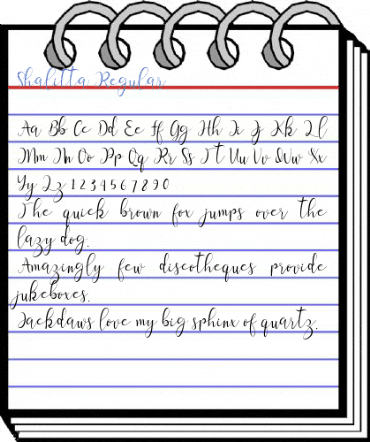 Shalitta Regular
Aa Bb Cc Dd Ee Ff Gg Hh Ii Jj Kk Ll
Mm Nn Oo Pp Qq Rr Ss Tt Uu Vv Ww Xx
Yy Zz 1234567890
The quick brown fox jumps over the
lazy dog.
Amazingly few discotheques provide
jukeboxes.
Jackdaws love my big sphinx of quartz.